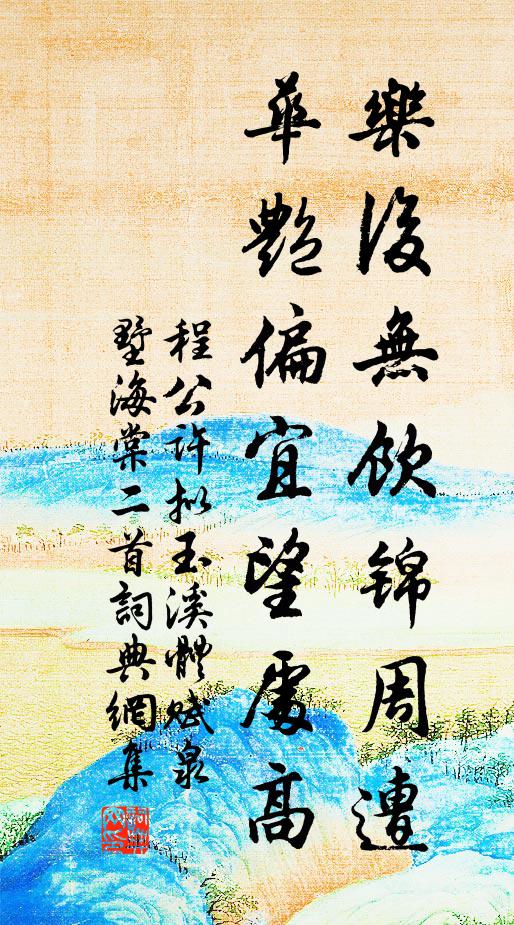 樂後無飲錦周遭
華艷偏宜望處高
程公許拟玉溪體賦泉
墅海棠二首詞典網集